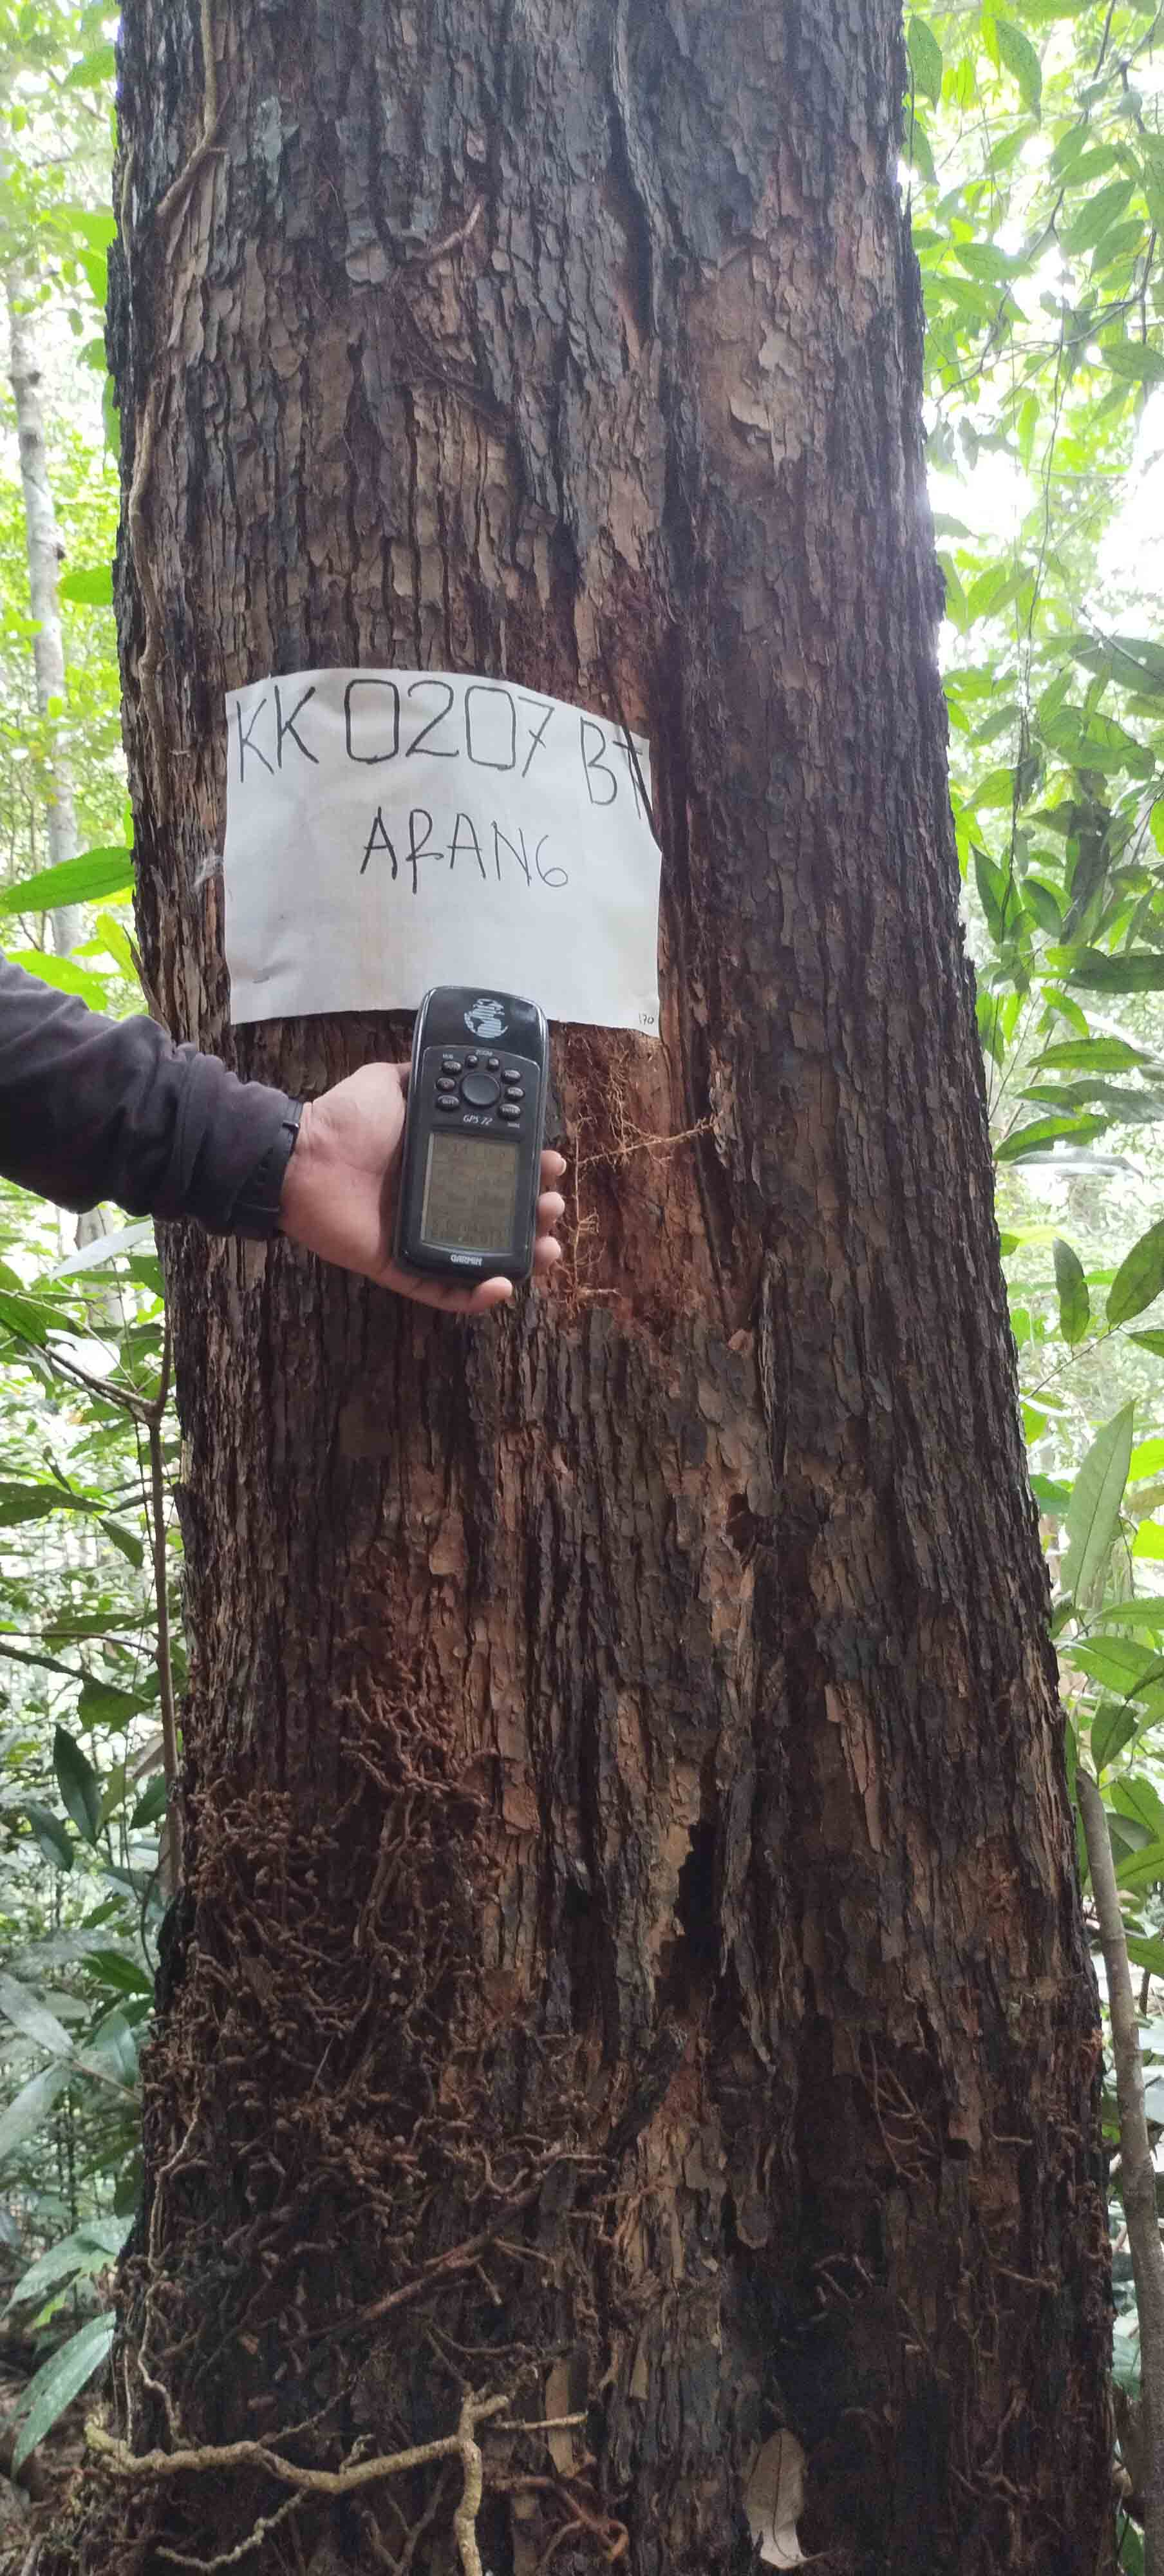 KK 0207 BT
ARANG
170
GPS 72
GARMIN